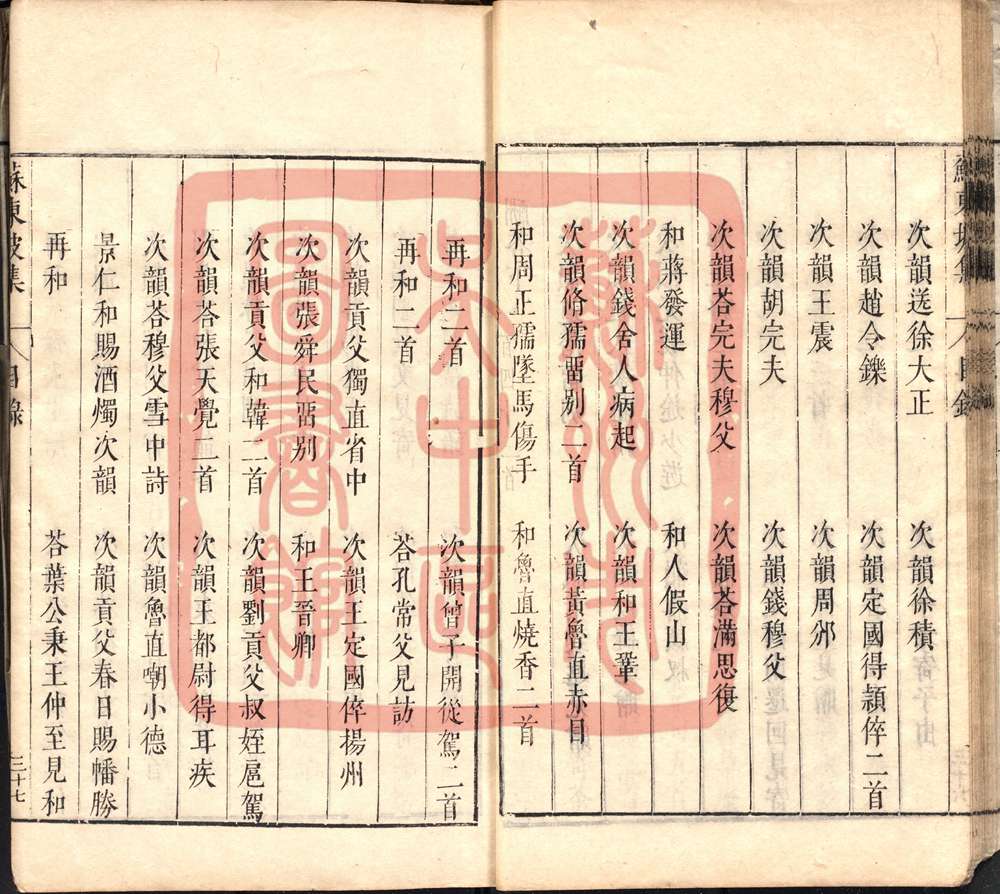 蘇東坡集 目錄
次韻送徐大正 次韻徐積
次韻趙令鑠 次韻定國得潁倅二首
次韻王震 次韻周邠
次韻胡完夫 次韻錢穆父
次韻荅完夫穆父 次韻荅滿思復
和蔣發運 和人假山
次韻錢舍人病起 次韻和王鞏
次韻脩孺畱别二首 次韻黃魯直赤目
和周正孺墜馬傷手 和魯直燒香二首
再和二首 次韻曾子開從駕二首
再和二首 荅孔常父見訪
次韻貢父獨直省中 次韻王定國倅揚州
次韻張舜民畱别 和王晉卿
次韻貢父和韓二首 次韻劉貢父叔姪扈駕
次韻荅張天覺二首 次韻王都尉得耳疾
次韻荅穆父雪中詩 次韻魯直嘲小德
景仁和賜酒燭次韻 次韻貢父春日賜幡勝
再和 荅葉公秉王仲至見和
蘇東坡集 目錄 三十七